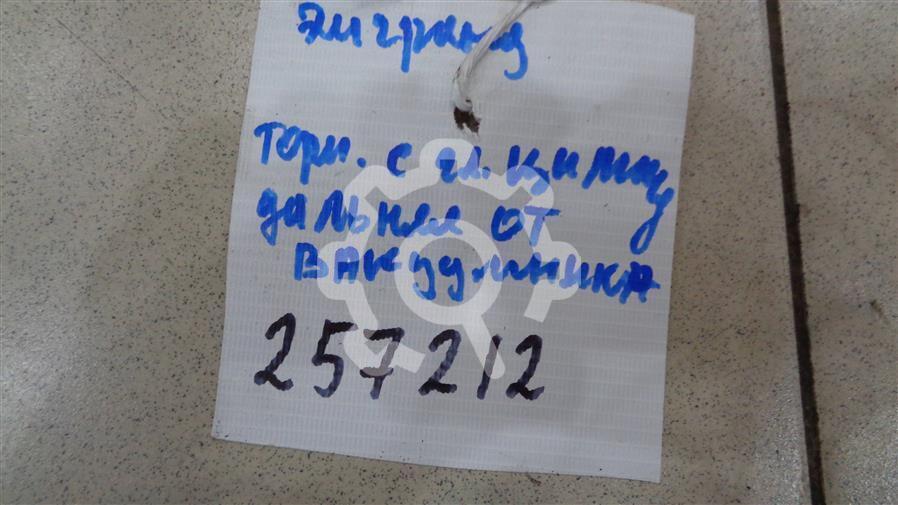 Эмгранд
торм. с гл. цилинд
дальняя от
вакуумника
257212